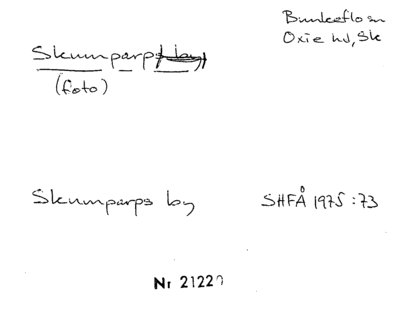 Bunkeflo sn
Oxie hd, Sk
Skumparps by
(foto)
Skumparps by SHFÅ 1975:73
Nr 21220